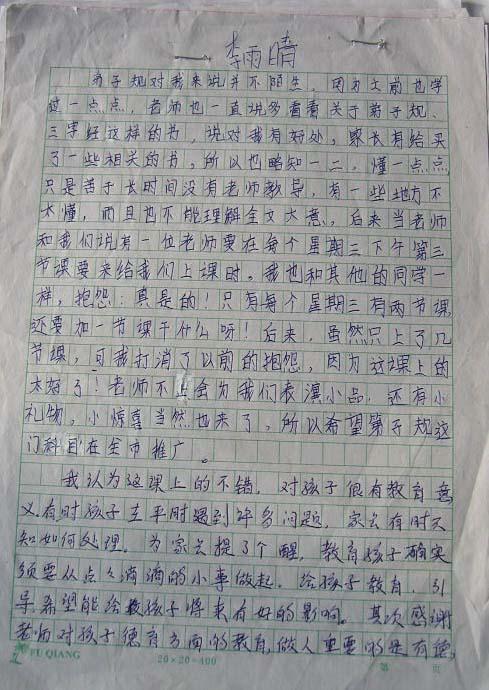 李雨晴
弟子规对我来说并不陌生，因为之前也学
过一点点，老师也一直说多看看关于弟子规、
三字经这样的书，说对我有好处，家长有给买
了一些相关的书，所以也略知一二，懂一点点
只是苦于长时间没有老师教导，有一些地方不
太懂，而且也不能理解全文大意，后来当老师
和我们说有一位老师要在每个星期三下午第三
节课要来给我们上课时。我也和其他的同学一
样，抱怨：真是的！只有每个星期三有两节课，
还要加一节课干什么呀！后来，虽然只上了几
节课，可我打消了以前的抱怨，因为这课上的
太好了！老师不会为我们表演小品，还有小
礼物，小惊喜当然也来了，所以希望弟子规这
门科目在全市推广。
我认为这课上的不错，对孩子很有教育意
义。有时孩子在平时遇到许多问题，家长有时不
知如何处理。为家长提了个醒，教育孩子确实
须要从点点滴滴的小事做起。给孩子教育，引
导希望能给孩子将来有好的影响。其次感谢
老师对孩子德育方面的教育，做人重要的是有德，
FU QIANG 20×20=400 第 页